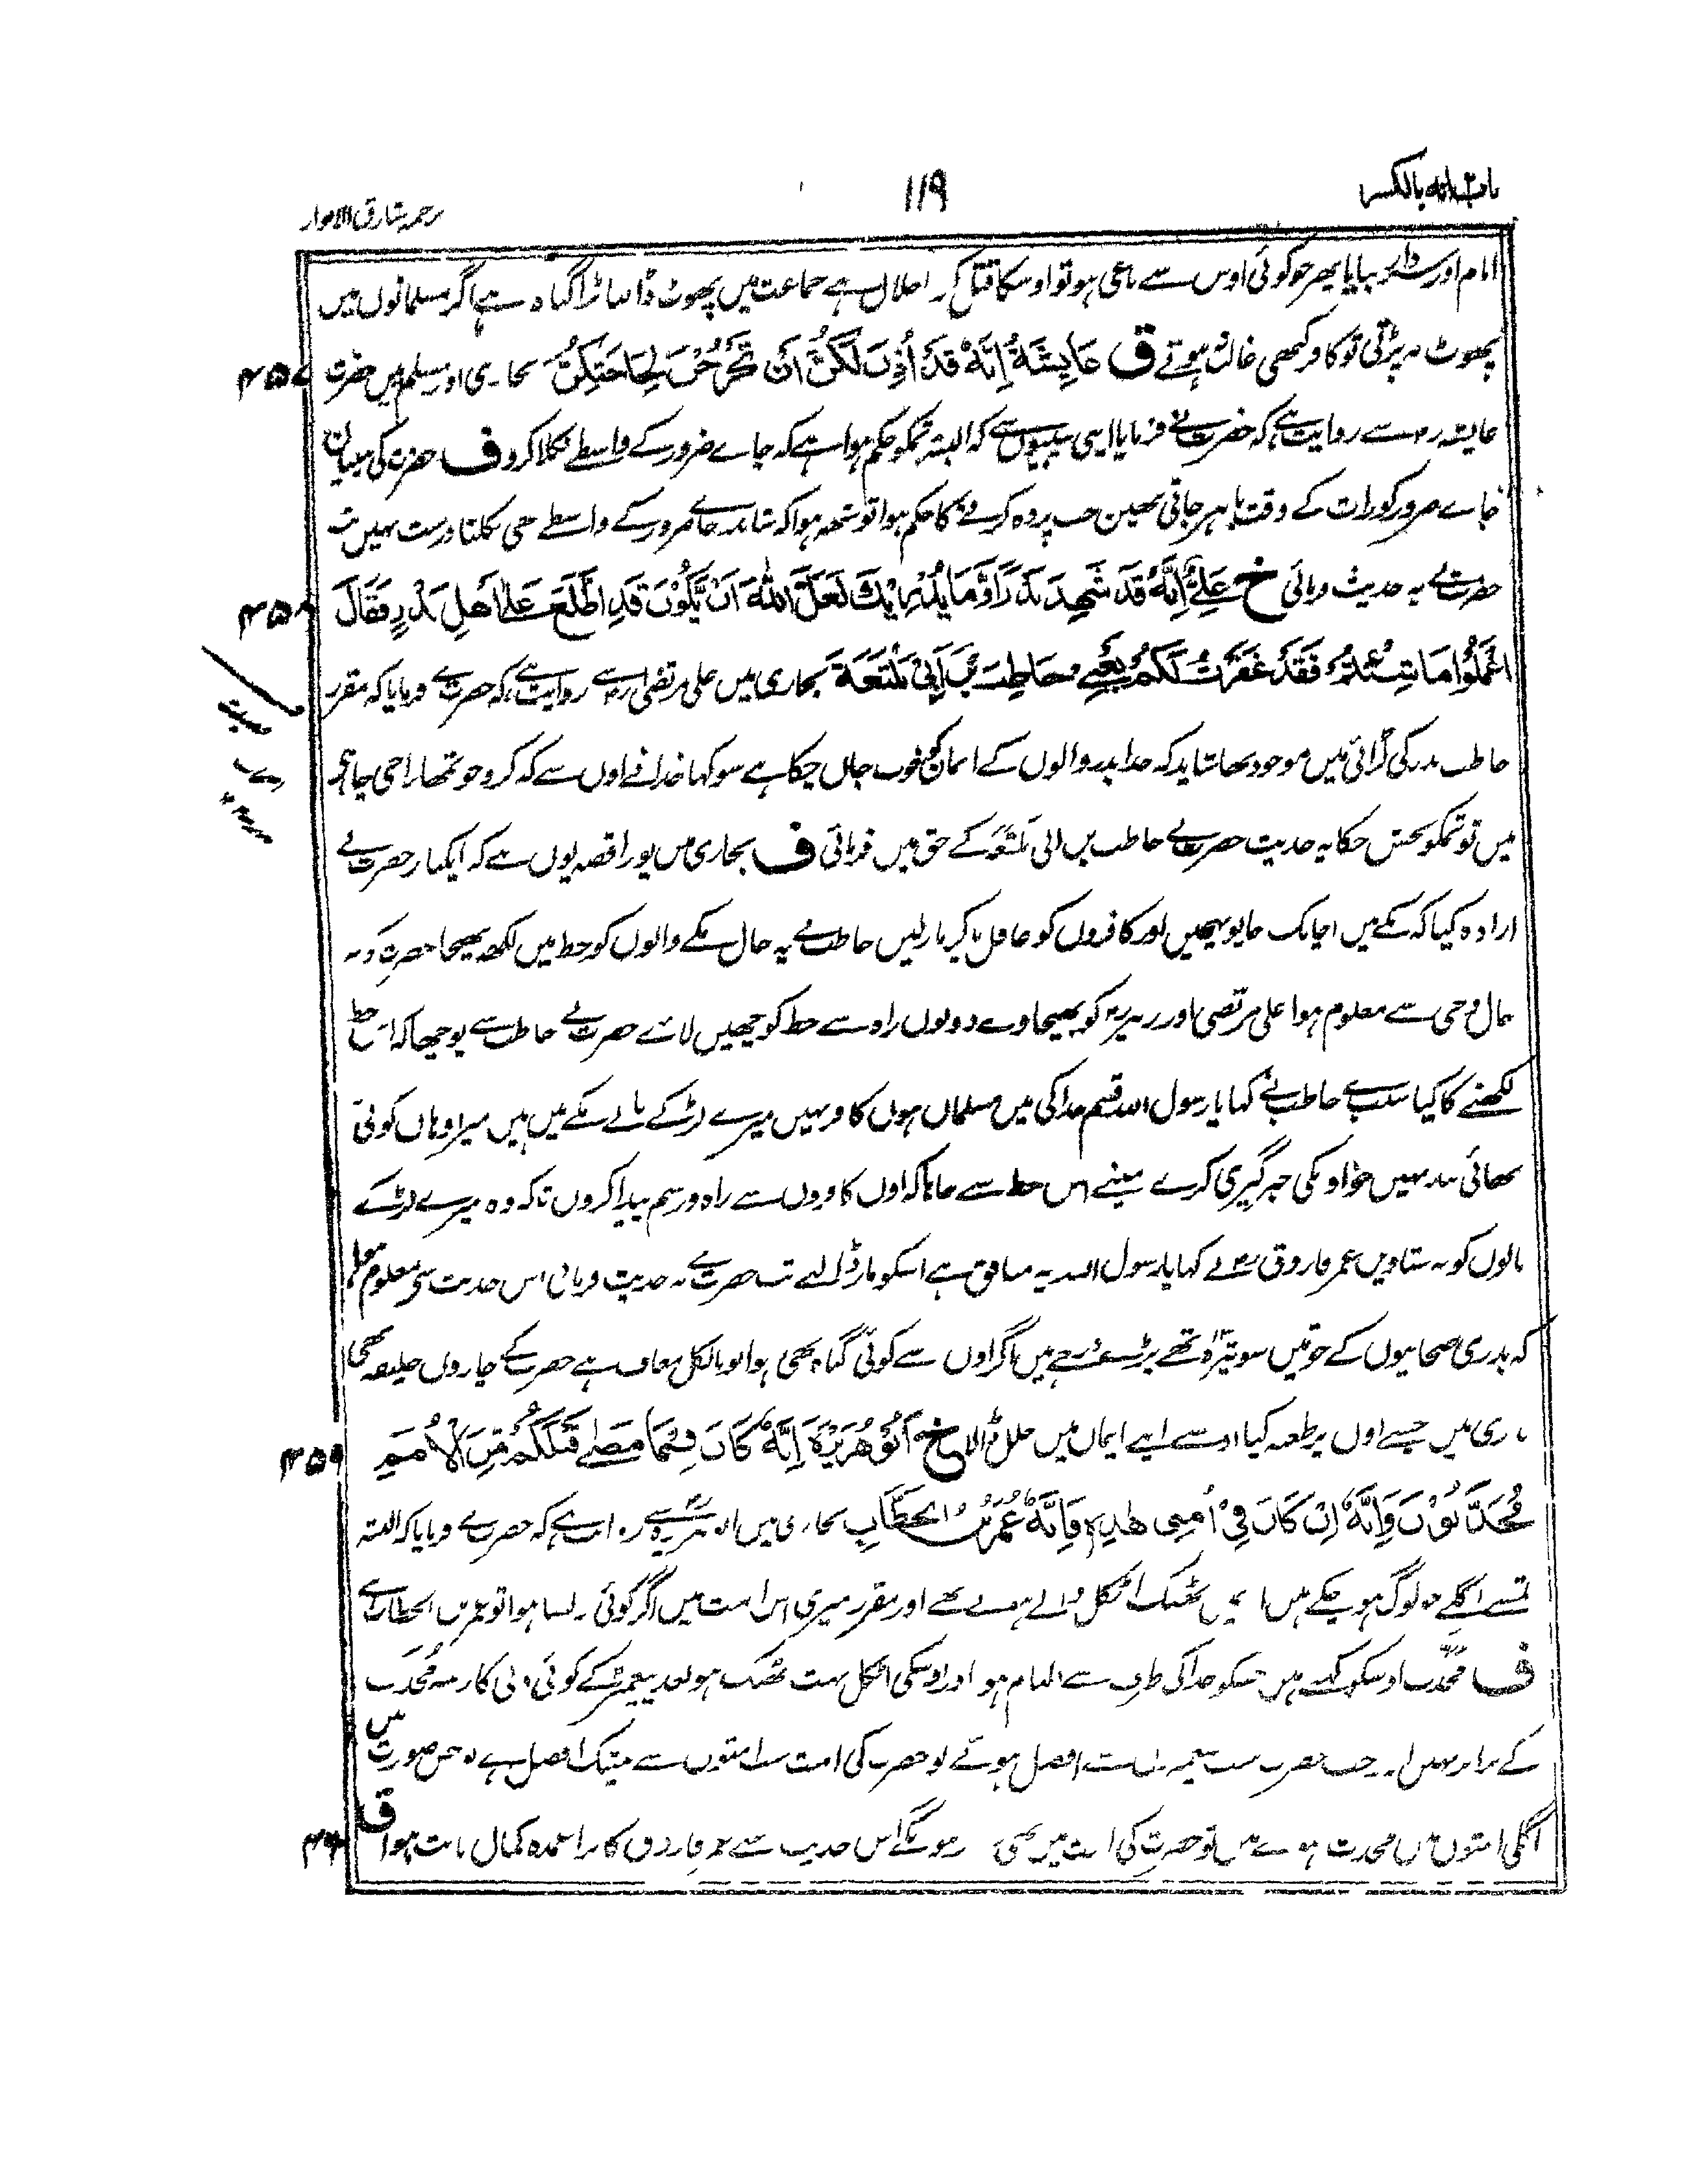 باب انہ بالکسر
۱۱۹
ترجمہ مشارق الانوار
امام اور سردار بنایا پھر جو کوئی اوس سے باغی ہو تو اوسکا قتل کرنا حلال ہے جماعت میں پھوٹ ڈالنا بڑا گناہ ہے اگر مسلمانوں میں
پھوٹ نہ پڑتی تو کافر کبھی غالب نہوتے ق عَايِشَةُ إِنَّهُ قَدْ أُذِنَ لَكُنَّ أَنْ تَخْرُجْنَ لِحَاجَتِكُنَّ بخاری اور مسلم میں حضرت
۴۵۷
عایشہ رض سے روایت ہے کہ حضرت نے فرمایا اپنی بیبیوں سے کہ البتہ تمکو حکم ہوا ہے کہ جاے ضرور کے واسطے نکلا کرو ف حضرت کی بیبیاں
جاے ضرور کو رات کے وقت باہر جاتی تھیں جب پردہ کرنے کا حکم ہوا تو شبہہ ہوا کہ شاید جاے ضرور کے واسطے بھی نکلنا درست نہیں تب
حضرت نے یہ حدیث فرمائی خ عَلِيٌّ إِنَّهُ قَدْ شَهِدَ بَدْرًا وَّمَا يُدْرِيْكَ لَعَلَّ اللهَ اَنْ يَّكُوْنَ قَدِ اطَّلَعَ عَلٰى اَهْلِ بَدْرٍ فَقَالَ
۴۵۸
اعْمَلُوْا مَا شِئْتُمْ فَقَدْ غَفَرْتُ لَكُمْ يَعْنِيْ حَاطِبَ بْنَ اَبِيْ بَلْتَعَةَ بخاری میں علی مرتضی رض سے روایت ہے کہ حضرت نے فرمایا کہ مقرر
حاطب بدر کی لڑائی میں موجود تھا شاید کہ خدا بدر والوں کے ایمان کو خوب جان چکا ہے سو کہا خدا نے اوں سے کہ کرو جو تمھارا جی چاہے
میں تو تمکو بخش چکا یہ حدیث حضرت نے حاطب بن ابی بلتعہ کے حق میں فرمائی ف بخاری میں پورا قصہ یوں ہے کہ ایکبار حضرت نے
ارادہ کیا کہ مکے میں اچانک جا پہونچیں اور کافروں کو غافل پا کر مار لیں حاطب نے یہ حال مکے والوں کو خط میں لکھ بھیجا حضرت کو یہ
حال وحی سے معلوم ہوا علی مرتضی اور زبیر رض کو بھیجا وے دونوں راہ سے خط کو چھین لائے حضرت نے حاطب سے پوچھا کہ اس خط
لکھنے کا کیا سبب ہے حاطب نے کہا یا رسول اللہ قسم خدا کی میں مسلمان ہوں کافر نہیں میرے لڑکے بالے مکے میں ہیں میرا وہاں کوئی
بھائی بند نہیں جو اونکی خبرگیری کرے مینے اس خط سے چاہا کہ اوں کافروں سے راہ و رسم پیدا کروں تاکہ وہ میرے لڑکے
بالوں کو نہ ستاویں عمر فاروق رض نے کہا یا رسول اللہ یہ منافق ہے اسکو مار ڈالیے تب حضرت نے یہ حدیث فرمائی اس حدیث سے معلوم ہوا
کہ بدری صحابیوں کے جو تین سو تیرہ تھے بڑے درجے ہیں اگر اوں سے کوئی گناہ بھی ہوا تو بالکل معاف ہے حضرت کے چاروں خلیفہ بھی
بدری ہیں جسنے اوں پر طعنہ کیا اوسنے اپنے ایمان میں خلل ڈالا خ اَبُوْ هُرَيْرَةَ اِنَّهُ كَانَ فِيْمَا مَضٰى قَبْلَكُمْ مِّنَ الْاُمَمِ
۴۵۹
مُحَدَّثُوْنَ وَاِنَّهُ اِنْ كَانَ فِيْ اُمَّتِيْ هٰذِهِ فَاِنَّهُ عُمَرُ بْنُ الْخَطَّابِ بخاری میں ابوہریرہ رض سے روایت ہے کہ حضرت نے فرمایا کہ البتہ
تمسے اگلے جو لوگ ہو چکے ہیں اونمیں ٹھیک اٹکل والے ہوے تھے اور مقرر میری اس امت میں اگر کوئی ایسا ہوا تو عمر بن الخطاب ہے
ف محدث اوسکو کہتے ہیں جسکو خدا کی طرف سے الہام ہو اور اوسکی اٹکل بہت ٹھیک ہو بعد پیغمبر کے کوئی ولی کا رتبہ محدث
کے برابر نہیں اور جب حضرت سب پیغمبروں سے افضل ہوئے تو حضرت کی امت سب امتوں سے بیشک افضل ہے تو جس صورت میں
اگلی امتوں میں محدث ہوے ہیں تو حضرت کی امت میں بھی ہونگے اس حدیث سے عمر فاروق کا بڑا عمدہ کمال ثابت ہوا ق
۴۶۰